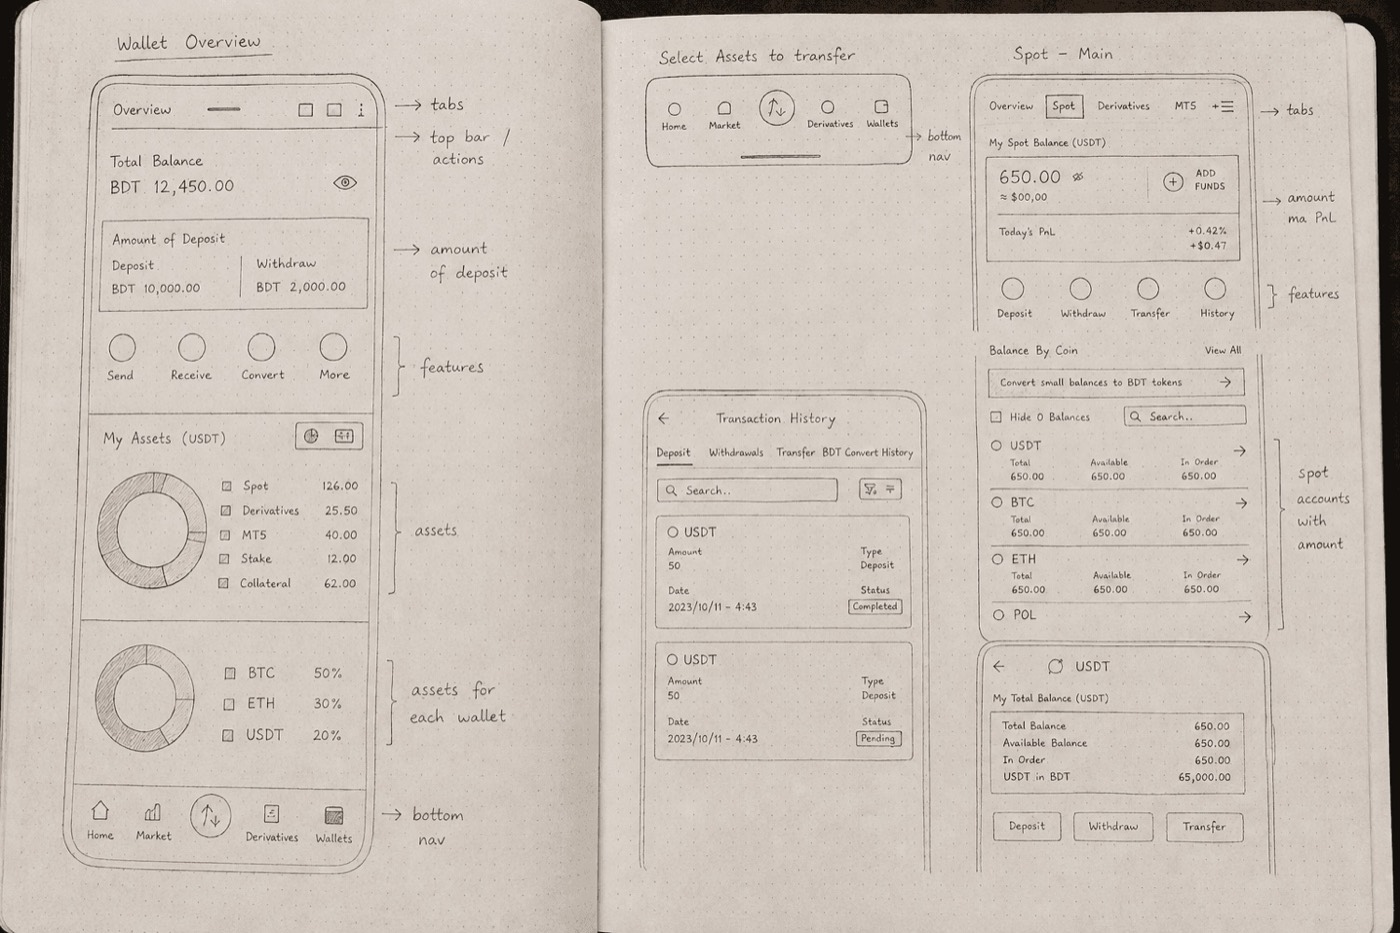 Wallet Overview
Overview
→ tabs
→ top bar /
actions
Total Balance
BDT 12,450.00
Amount of Deposit
Deposit Withdraw
BDT 10,000.00 BDT 2,000.00
→ amount
of deposit
Send Receive Convert More
features
My Assets (USDT)
Spot 126.00
Derivatives 25.50
MT5 40.00
Stake 12.00
Collateral 62.00
assets
BTC 50%
ETH 30%
USDT 20%
assets for
each wallet
Home Market Derivatives Wallets
→ bottom
nav
Select Assets to transfer
Home Market Derivatives Wallets
→ bottom
nav
← Transaction History
Deposit Withdrawals Transfer BDT Convert History
Search..
USDT
Amount Type
50 Deposit
Date Status
2023/10/11 - 4:43 Completed
USDT
Amount Type
50 Deposit
Date Status
2023/10/11 - 4:43 Pending
Spot - Main
Overview Spot Derivatives MT5 +
→ tabs
My Spot Balance (USDT)
650.00
≈ $00,00
+ ADD
FUNDS
→ amount
ma PnL
Today's PnL +0.42%
+$0.47
Deposit Withdraw Transfer History
features
Balance By Coin View All
Convert small balances to BDT tokens →
Hide 0 Balances Search..
USDT →
Total Available In Order
650.00 650.00 650.00
BTC →
Total Available In Order
650.00 650.00 650.00
ETH →
Total Available In Order
650.00 650.00 650.00
POL →
spot
accounts
with
amount
← USDT
My Total Balance (USDT)
Total Balance 650.00
Available Balance 650.00
In Order 650.00
USDT in BDT 65,000.00
Deposit Withdraw Transfer